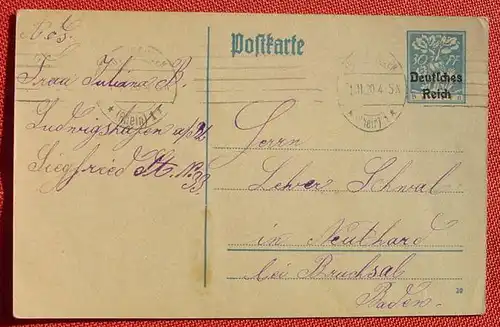 Postkarte
30 PF
Deutsches
Reich
Abs.
Frau Juliana B.
Ludwigshafen a/Rh
Siegfried St.
(Rhein) 1
1.11.20. 4-5N
(Rhein) 1
Herrn
Lehrer Schwal
in Neuthard
bei Bruchsal
Baden.